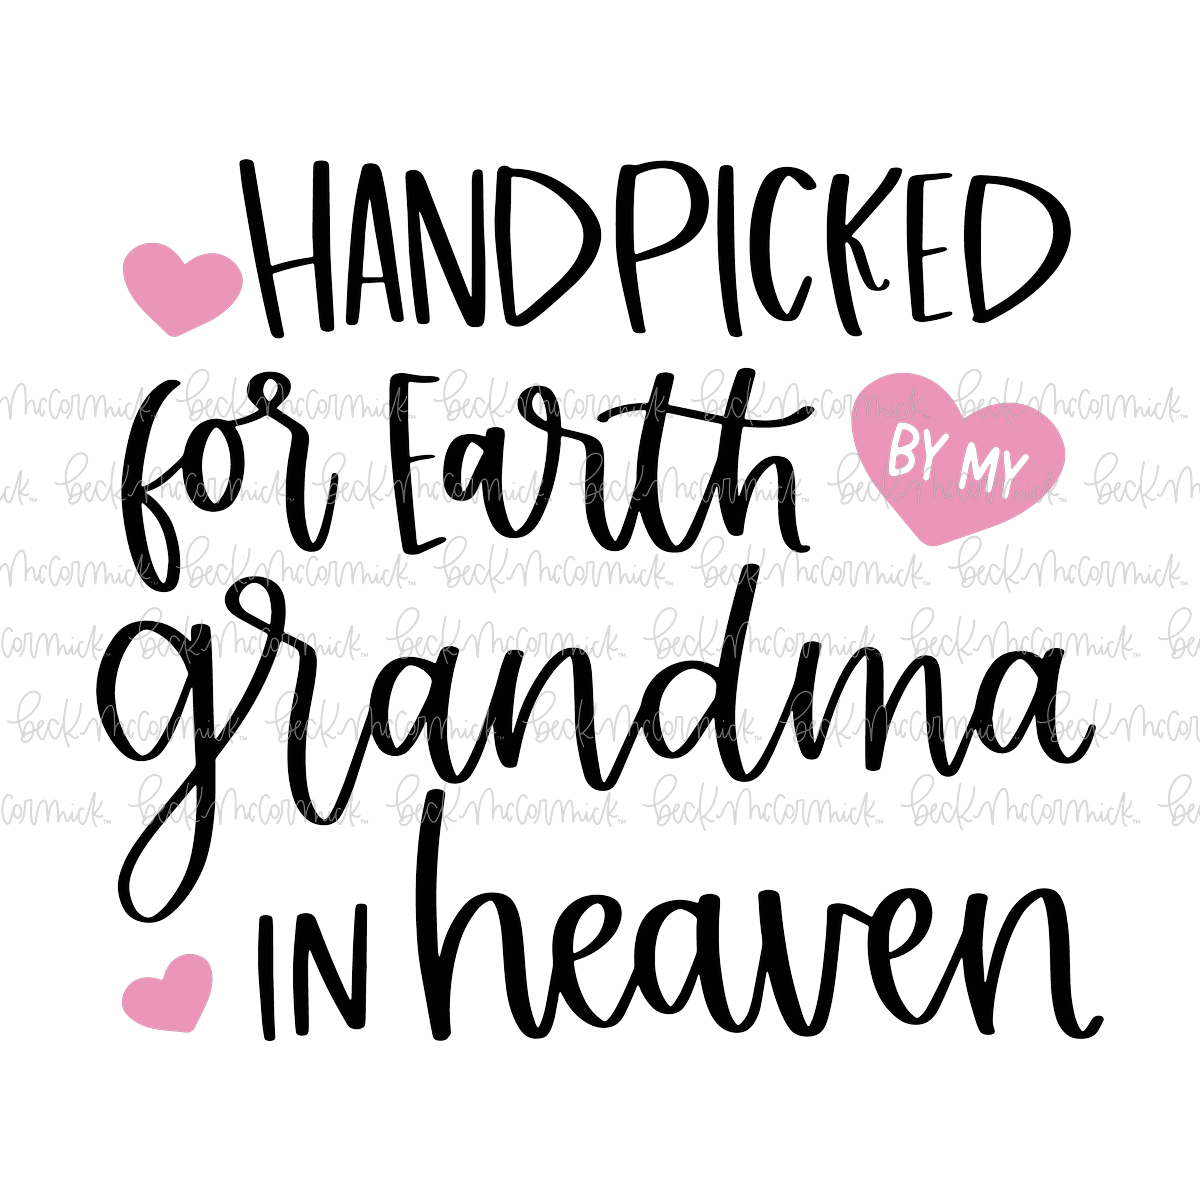 HANDPICKED
for Earth BY MY
grandma
IN heaven
beck mccormick™